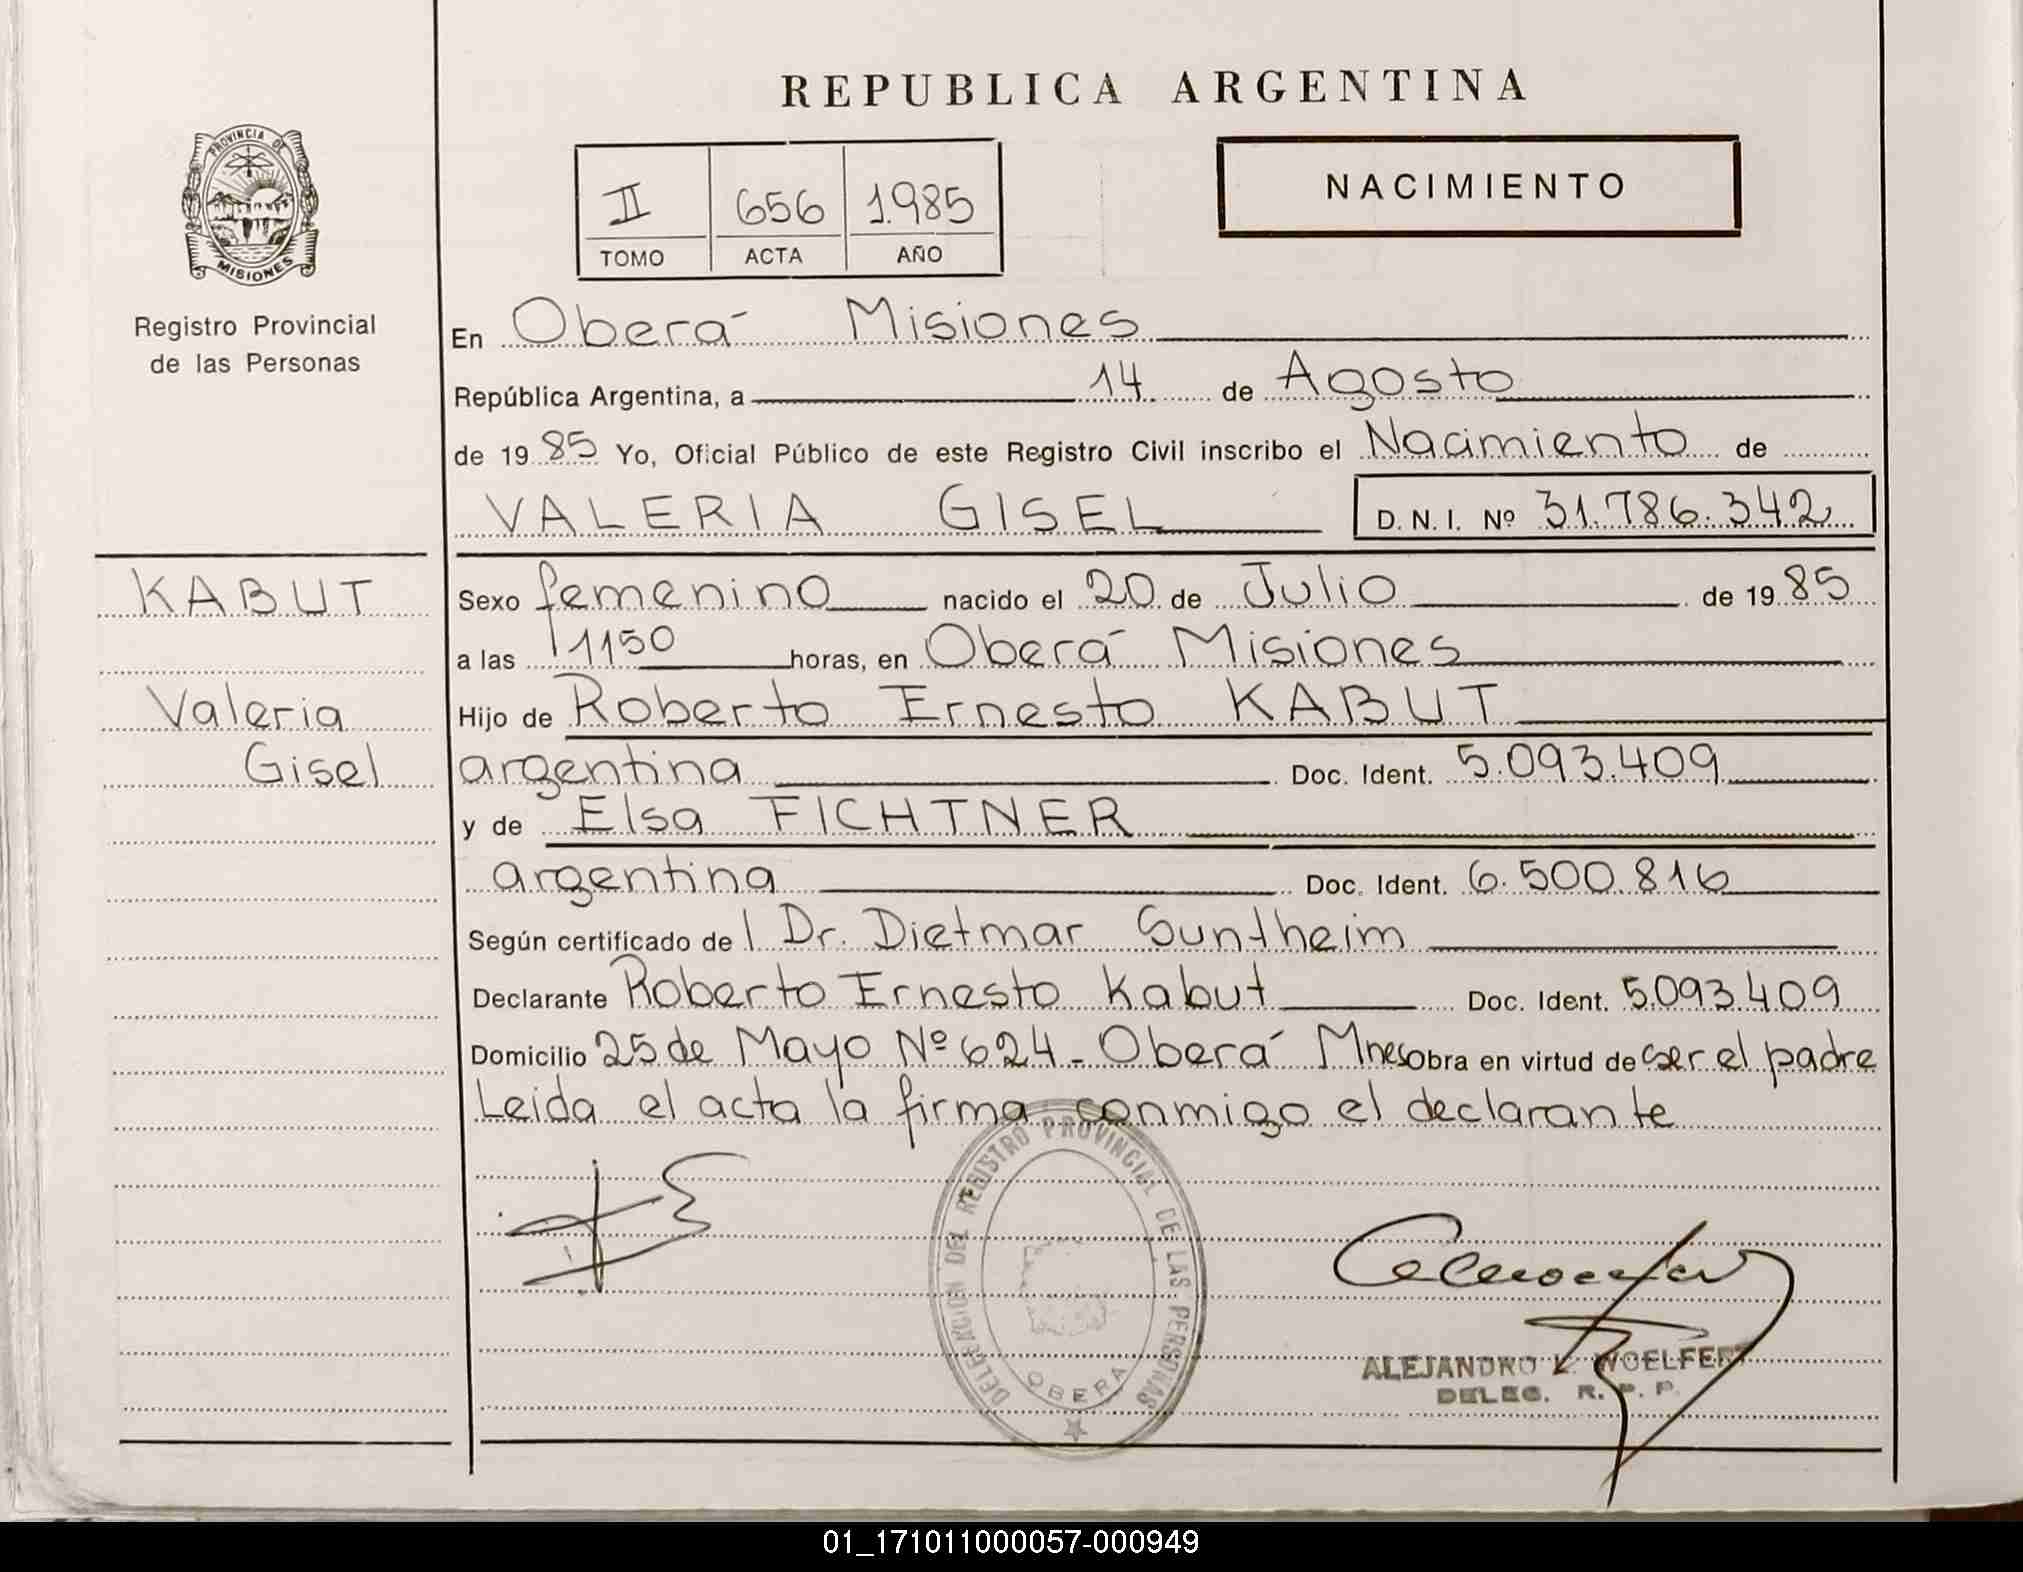 REPUBLICA ARGENTINA
PROVINCIA DE
MISIONES
Registro Provincial
de las Personas
II 656 1.985
TOMO ACTA AÑO
NACIMIENTO
En Oberá Misiones
República Argentina, a 14 de Agosto
de 1985 Yo, Oficial Público de este Registro Civil inscribo el Nacimiento de
VALERIA GISEL D.N.I. Nº 31.786.342
KABUT
Valeria
Gisel
Sexo femenino nacido el 20 de Julio de 1985
a las 1150 horas, en Oberá Misiones
Hijo de Roberto Ernesto KABUT
argentina Doc. Ident. 5.093.409
y de Elsa FICHTNER
argentina Doc. Ident. 6.500.816
Según certificado de l Dr. Dietmar Suntheim
Declarante Roberto Ernesto Kabut Doc. Ident. 5.093.409
Domicilio 25 de Mayo Nº 624 - Oberá Mnes obra en virtud de ser el padre
Leida el acta la firma conmigo el declarante
DELEGACION DEL REGISTRO PROVINCIAL DE LAS PERSONAS
OBERA
ALEJANDRO WOELFERT
DELEG. R. P. P.
01_171011000057-000949